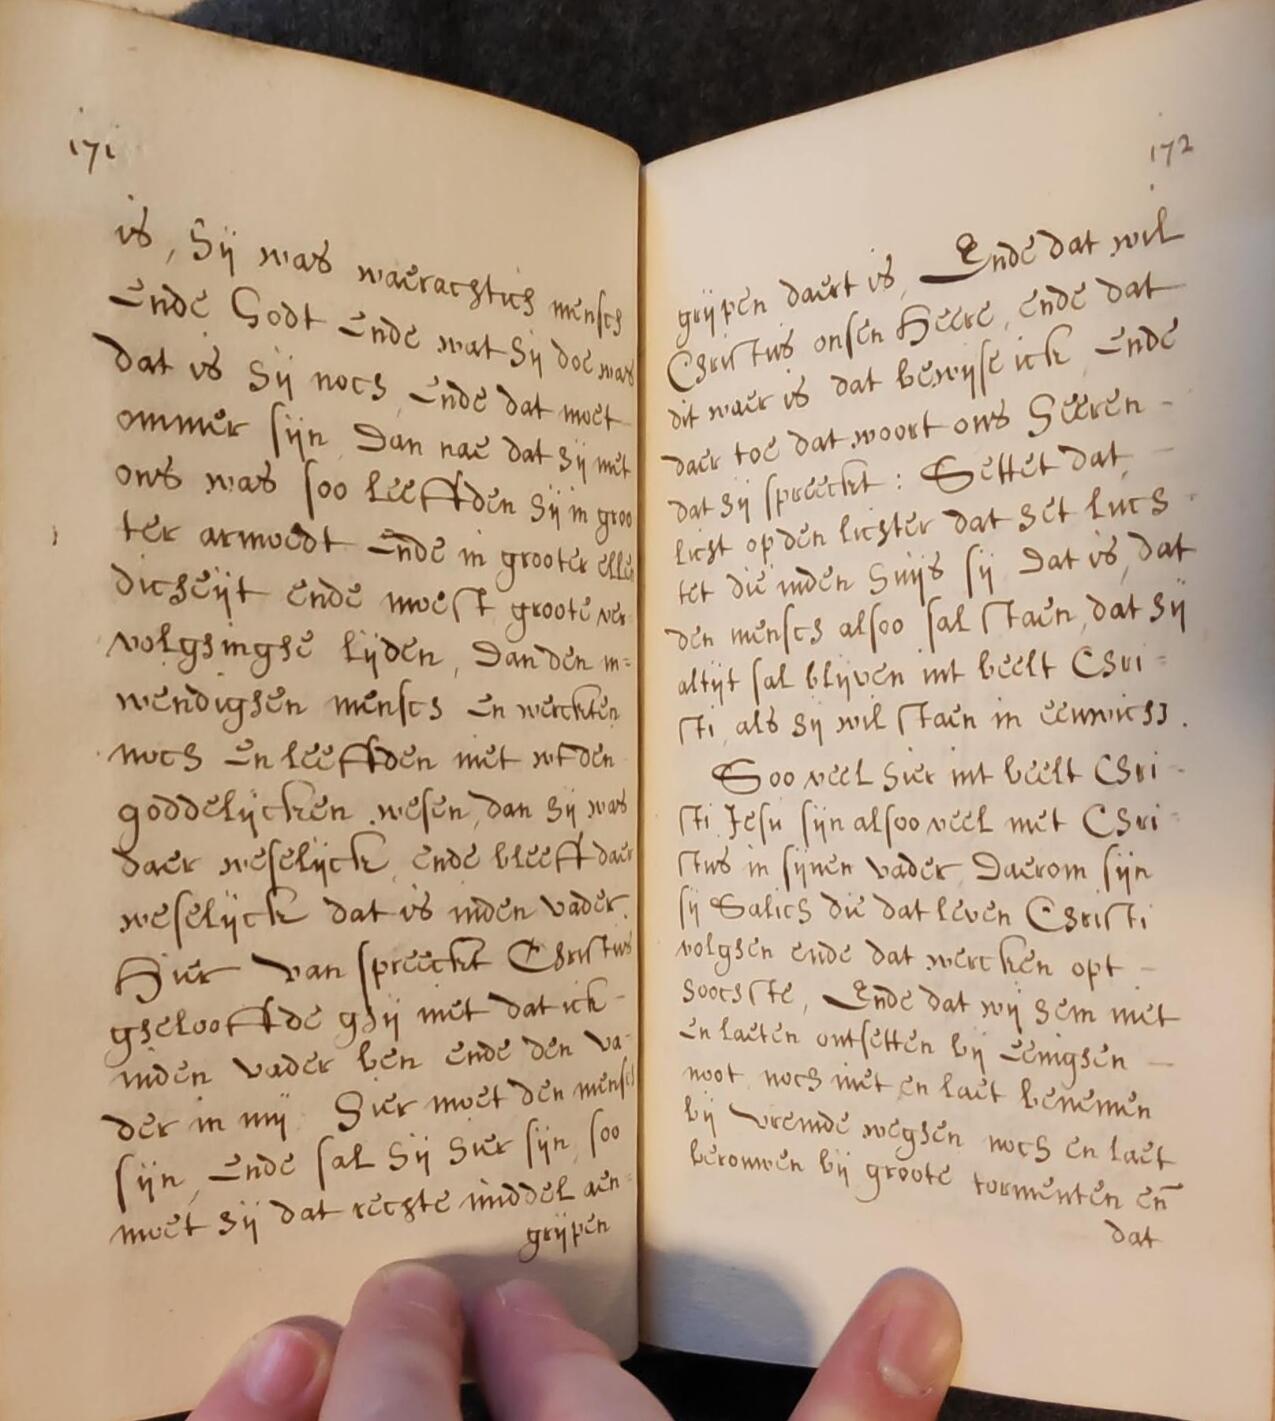 171
is, hij was waerachtich mensch
Ende Godt Ende wat hij doe was
dat is hij noch, Ende dat moet
ommer sijn, Dan nae dat hij met
ons was soo leeffden hij in groo
ter armoedt Ende in grooter ellen
dicheijt ende moest groote ver
volghinghe lijden, Dan den in=
wendighen mensch En werckten
noch En leeffden niet wt den
goddelijcken wesen, dan hij was
daer weselijck, ende bleeff daer
weselijck dat is inden Vader.
Hier Van spreeckt Christus
ghelooffde ghij niet dat ick-
inden Vader ben ende den Va-
der in mij. Hier moet den mensch
sijn, Ende sal hij hier sijn, soo
moet hij dat rechte middel aen-
grijpen
172
grijpen daert is, Ende dat wil
Christus onsen Heere, ende dat
dit waer is dat bewijse ick, Ende
daer toe dat woort ons Heeren-
dat hij spreeckt: Settet dat-
licht op den lichter dat het luch-
tet die inden huijs sij Dat is, dat
den mensch alsoo sal staen, dat hij
altijt sal blijven int beelt Chri=
sti, als hij wil staen in eenwich3.
Soo veel hier int beelt Chri-
sti Jesu sijn alsoo veel met Chri-
stus in sijnen Vader, Daerom sijn
sij Salich die dat leven Christi
volghen ende dat wercken opt-
hoochste, Ende dat wij hem niet
En laeten ontsetten bij Eenighen-
noot, noch niet en laet benemen
bij Vremde weghen noch en laet
berouwen bij groote tormenten en̄
dat